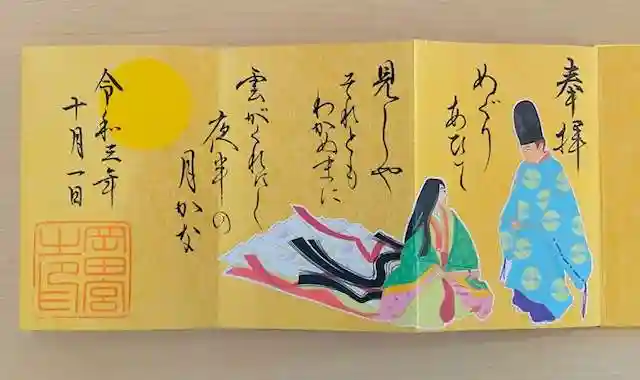 奉拝
めぐり
あひて
見しや
それとも
わかぬまに
雲がくれにし
夜半の
月かな
令和三年
十月一日
岡田宮
之印